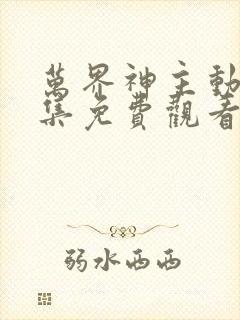 萬界神主動
集免費觀看
弱水西西